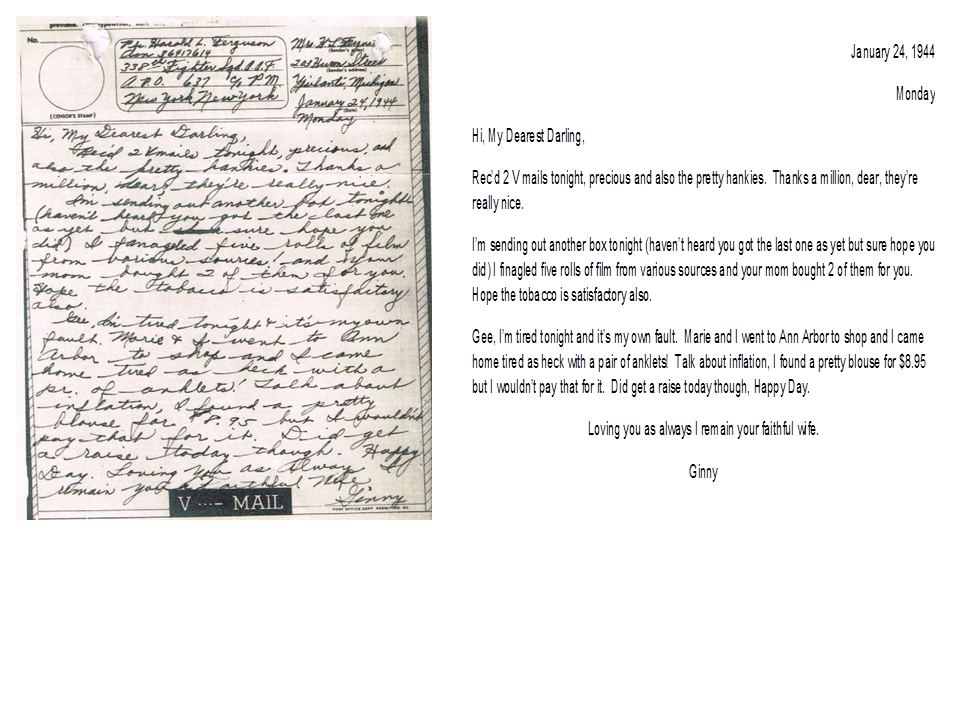 No.
(CENSOR'S STAMP)
Pfc. Harold L. Ferguson
Asn 36417614
338th Fighter Sqd. A.A.F.
A.P.O. 637 c/o P.M.
New York, New York
Mrs H L Ferguson
(Sender's name)
203 Huron Street
(Sender's address)
Ypsilanti, Michigan
January 24, 1944
(Date)
Monday
Hi, My Dearest Darling,
Rec'd 2 Vmails tonight, precious, and
also the pretty hankies. Thanks a
million, dear, they're really nice.
I'm sending out another box tonight
(haven't heard you got the last one
as yet but sure hope you
did) I fanagled five rolls of film
from various sources! and your
mom bought 2 of them for you.
Hope the tobacco is satisfactory
also.
Gee, I'm tired tonight & it's my own
fault. Marie & I went to Ann
Arbor to shop and I came
home tired as heck with a
pr. of anklets! Talk about
inflation, I found a pretty
blouse for $8.95 but I wouldn't
pay that for it. Did get
a raise today though. Happy
Day. Loving you as always I
remain your faithful wife
Ginny
V ···– MAIL
POST OFFICE DEPT. PERMIT NO.
January 24, 1944
Monday
Hi, My Dearest Darling,
Rec'd 2 V mails tonight, precious and also the pretty hankies. Thanks a million, dear, they're
really nice.
I'm sending out another box tonight (haven't heard you got the last one as yet but sure hope you
did) I finagled five rolls of film from various sources and your mom bought 2 of them for you.
Hope the tobacco is satisfactory also.
Gee, I'm tired tonight and it's my own fault. Marie and I went to Ann Arbor to shop and I came
home tired as heck with a pair of anklets! Talk about inflation, I found a pretty blouse for $8.95
but I wouldn't pay that for it. Did get a raise today though, Happy Day.
Loving you as always I remain your faithful wife.
Ginny